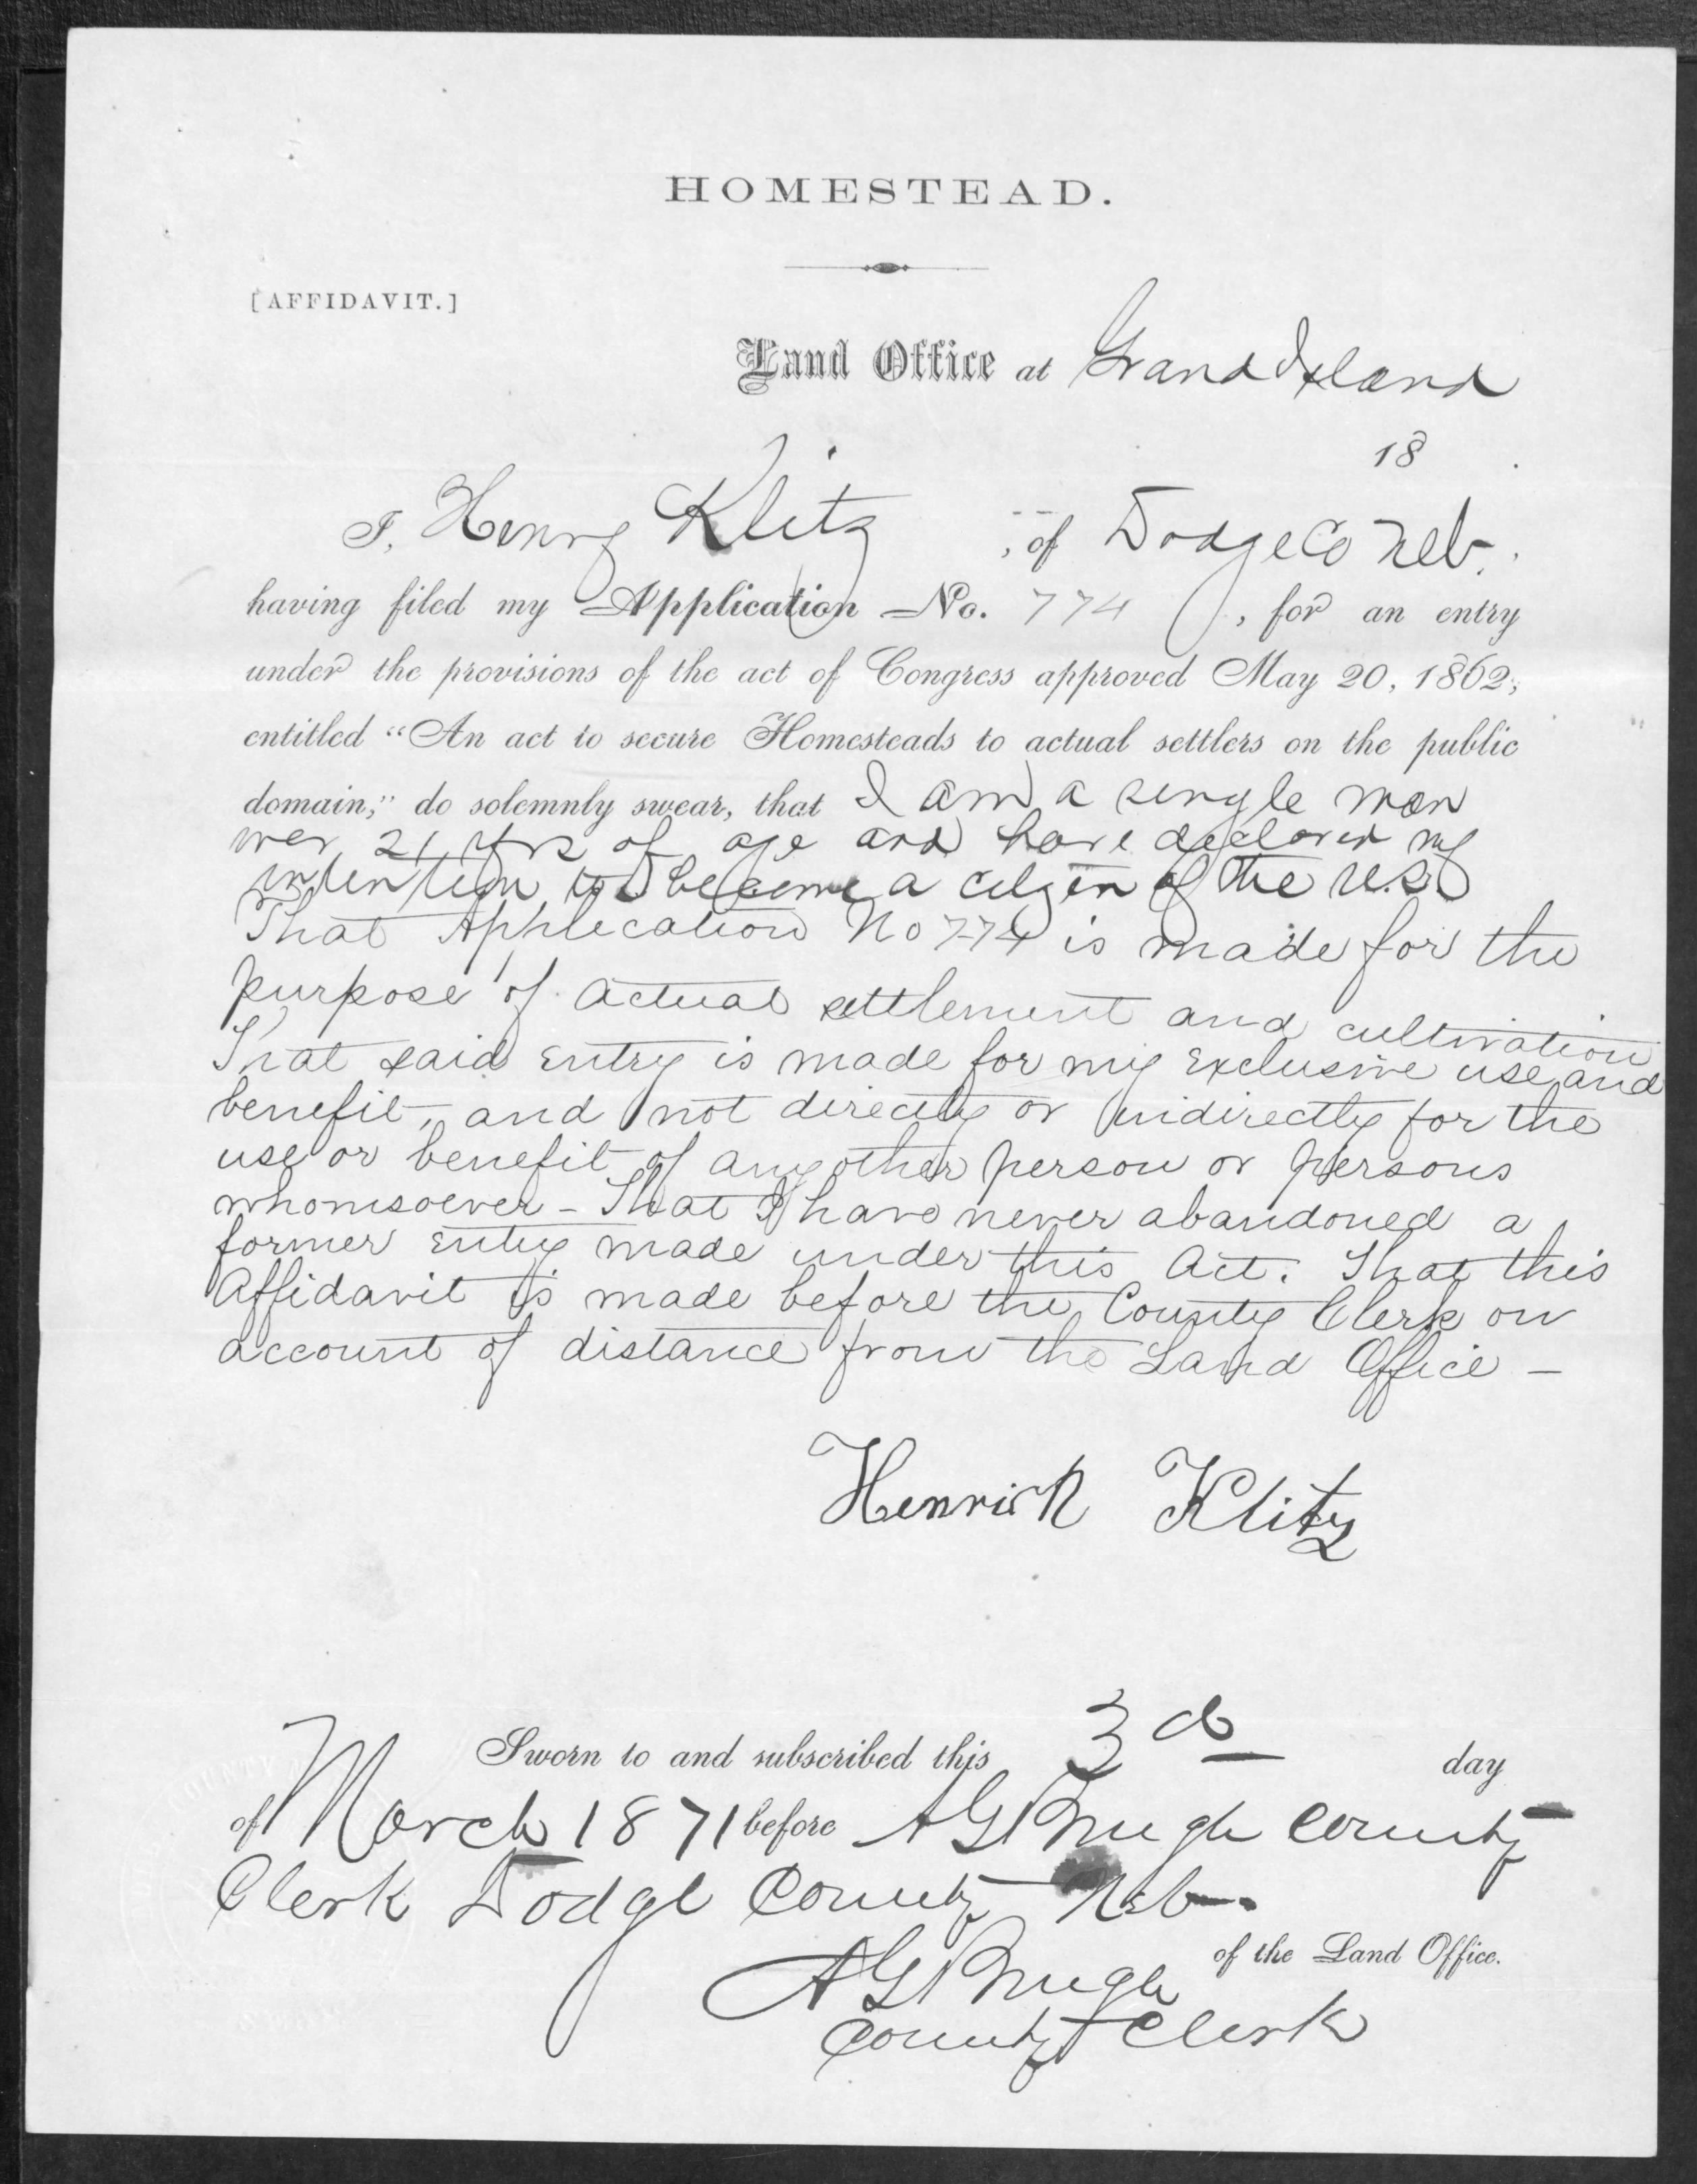 HOMESTEAD.
[AFFIDAVIT.]
Land Office at Grand Island
18 .
I, Henry Klitz , of Dodge Co Neb.
having filed my Application No. 774 , for an entry
under the provisions of the act of Congress approved May 20, 1862,
entitled "An act to secure Homesteads to actual settlers on the public
domain," do solemnly swear, that I am a single man
over 21 yrs of age and have declared my
intention to become a citizen of the U.S.
That Application No 774 is made for the
purpose of actual settlement and cultivation
That said entry is made for my exclusive use and
benefit, and not directly or indirectly for the
use or benefit of any other person or persons
whomsoever - That I have never abandoned a
former entry made under this Act. That this
Affidavit is made before the County Clerk on
account of distance from the Land Office -
Henrich Klitz
Sworn to and subscribed this 3d day
of March 1871 before A G County
Clerk Dodge County Neb.
of the Land Office.
A G
County Clerk